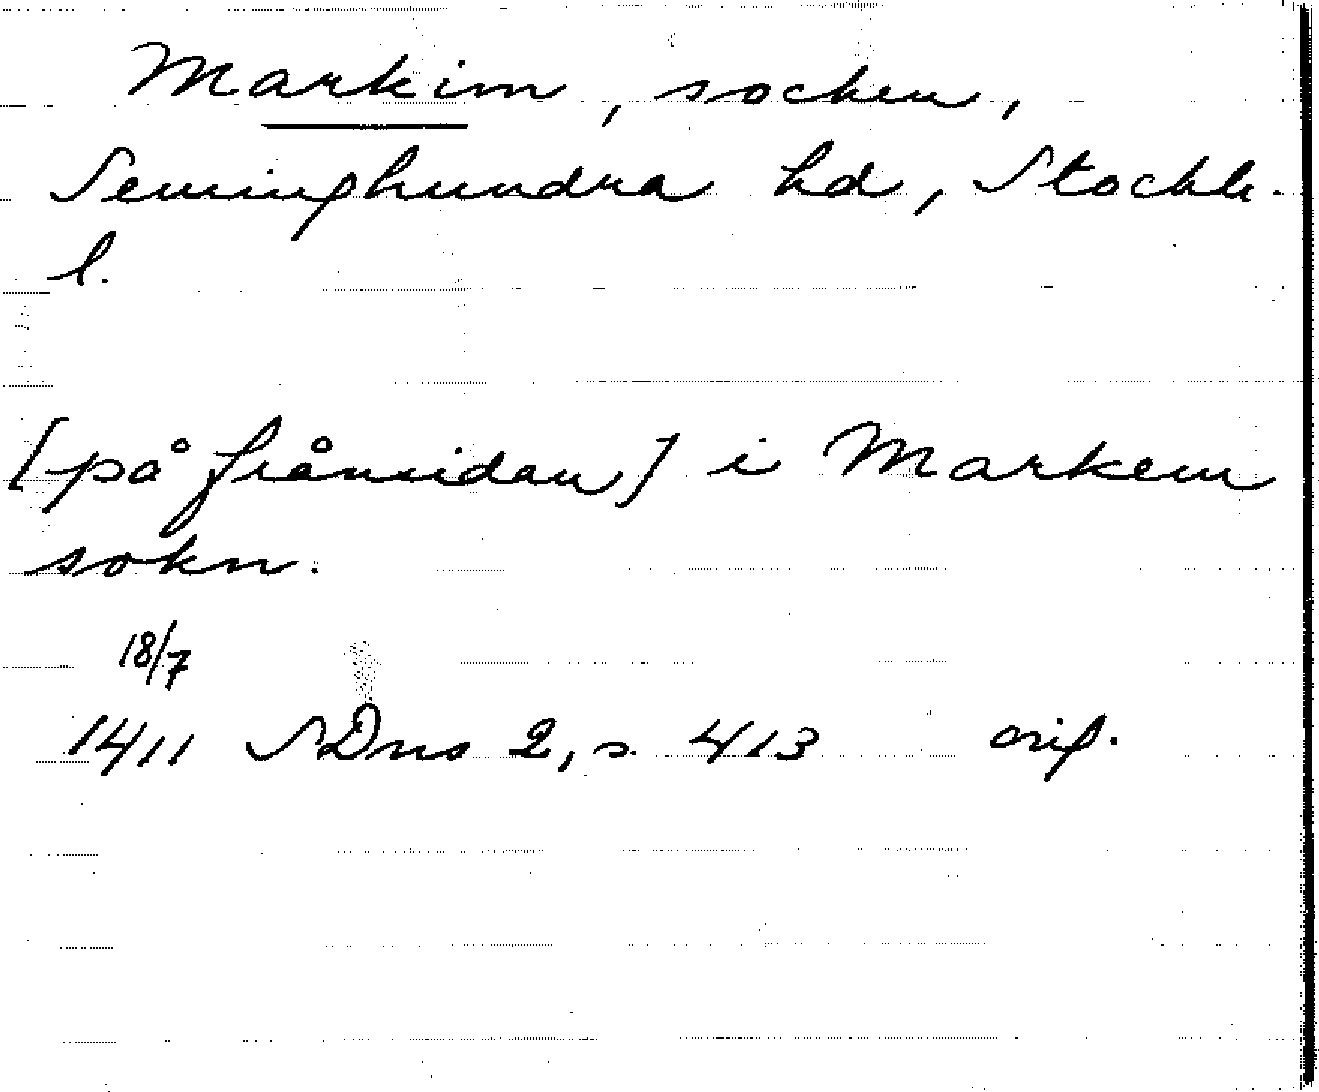 Markim, socken,
Seminghundra hd, Stockh.
l.
[på frånsidan] i Markem
sokn.
18/7
1411 SDns 2, s. 413 orig.